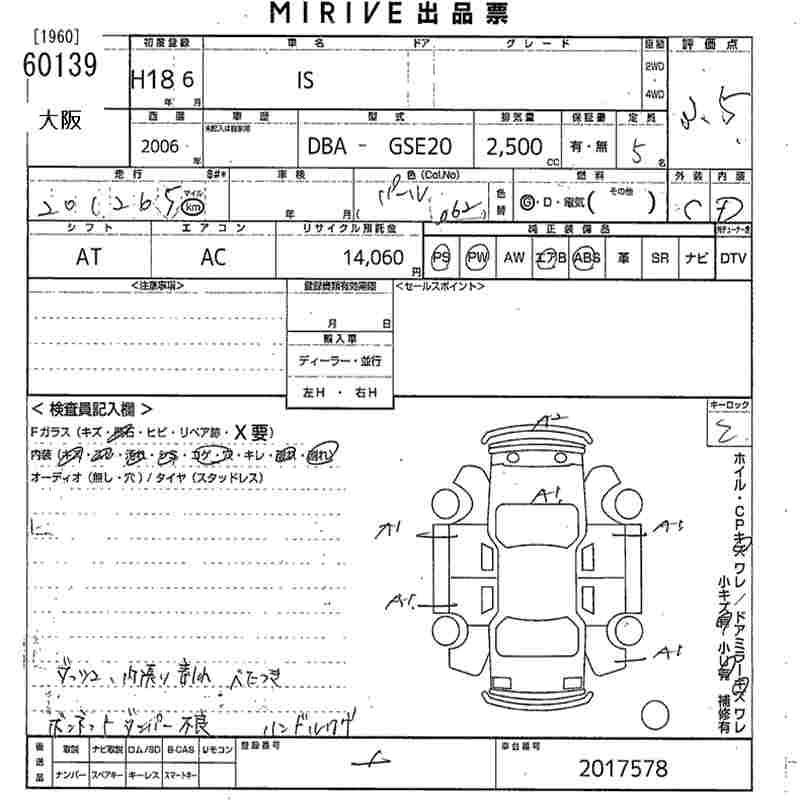 MIRIVE 出品票
[1960]
60139
大阪
初度登録 車名 ドア グレード 駆動 評価点
H18 6 年 月 IS 2WD 4WD
西暦 車歴 型式 排気量 保証書 定員
未記入は自家用
2006 年 DBA - GSE20 2,500 CC 有・無 5 名
走行 車検 色 (Col.No) 燃料 外装 内装
マイル km 年 月 パール 062 色替 G・D・電気 ( その他 ) C D
シフト エアコン リサイクル預託金 純正装備品
AT AC 14,060 円 PS PW AW エアB ABS 革 SR ナビ DTV
<注意事項> 登録書類有効期限 <セールスポイント>
月 日
輸入車
ディーラー・並行
左H ・ 右H
< 検査員記入欄 > キーロック
Fガラス (キズ・飛石・ヒビ・リペア跡・X要)
内装 (キズ・・汚れ・シミ・コゲ・穴・キレ・・割れ)
オーディオ (無し・穴) / タイヤ (スタッドレス)
A2
A1
A1 A1
A1 A1
ホイル・CPキズ ワレ / ドアミラーキズ ワレ
小キズ 小U 補修有
ダッシュ、内張り割れ べたつき
ボンネットダンパー不良 ハンドル
後送品 取説 ナビ取説 ロム/SD B-CAS リモコン 登録番号 車台番号
ナンバー スペアキー キーレス スマートキー 2017578